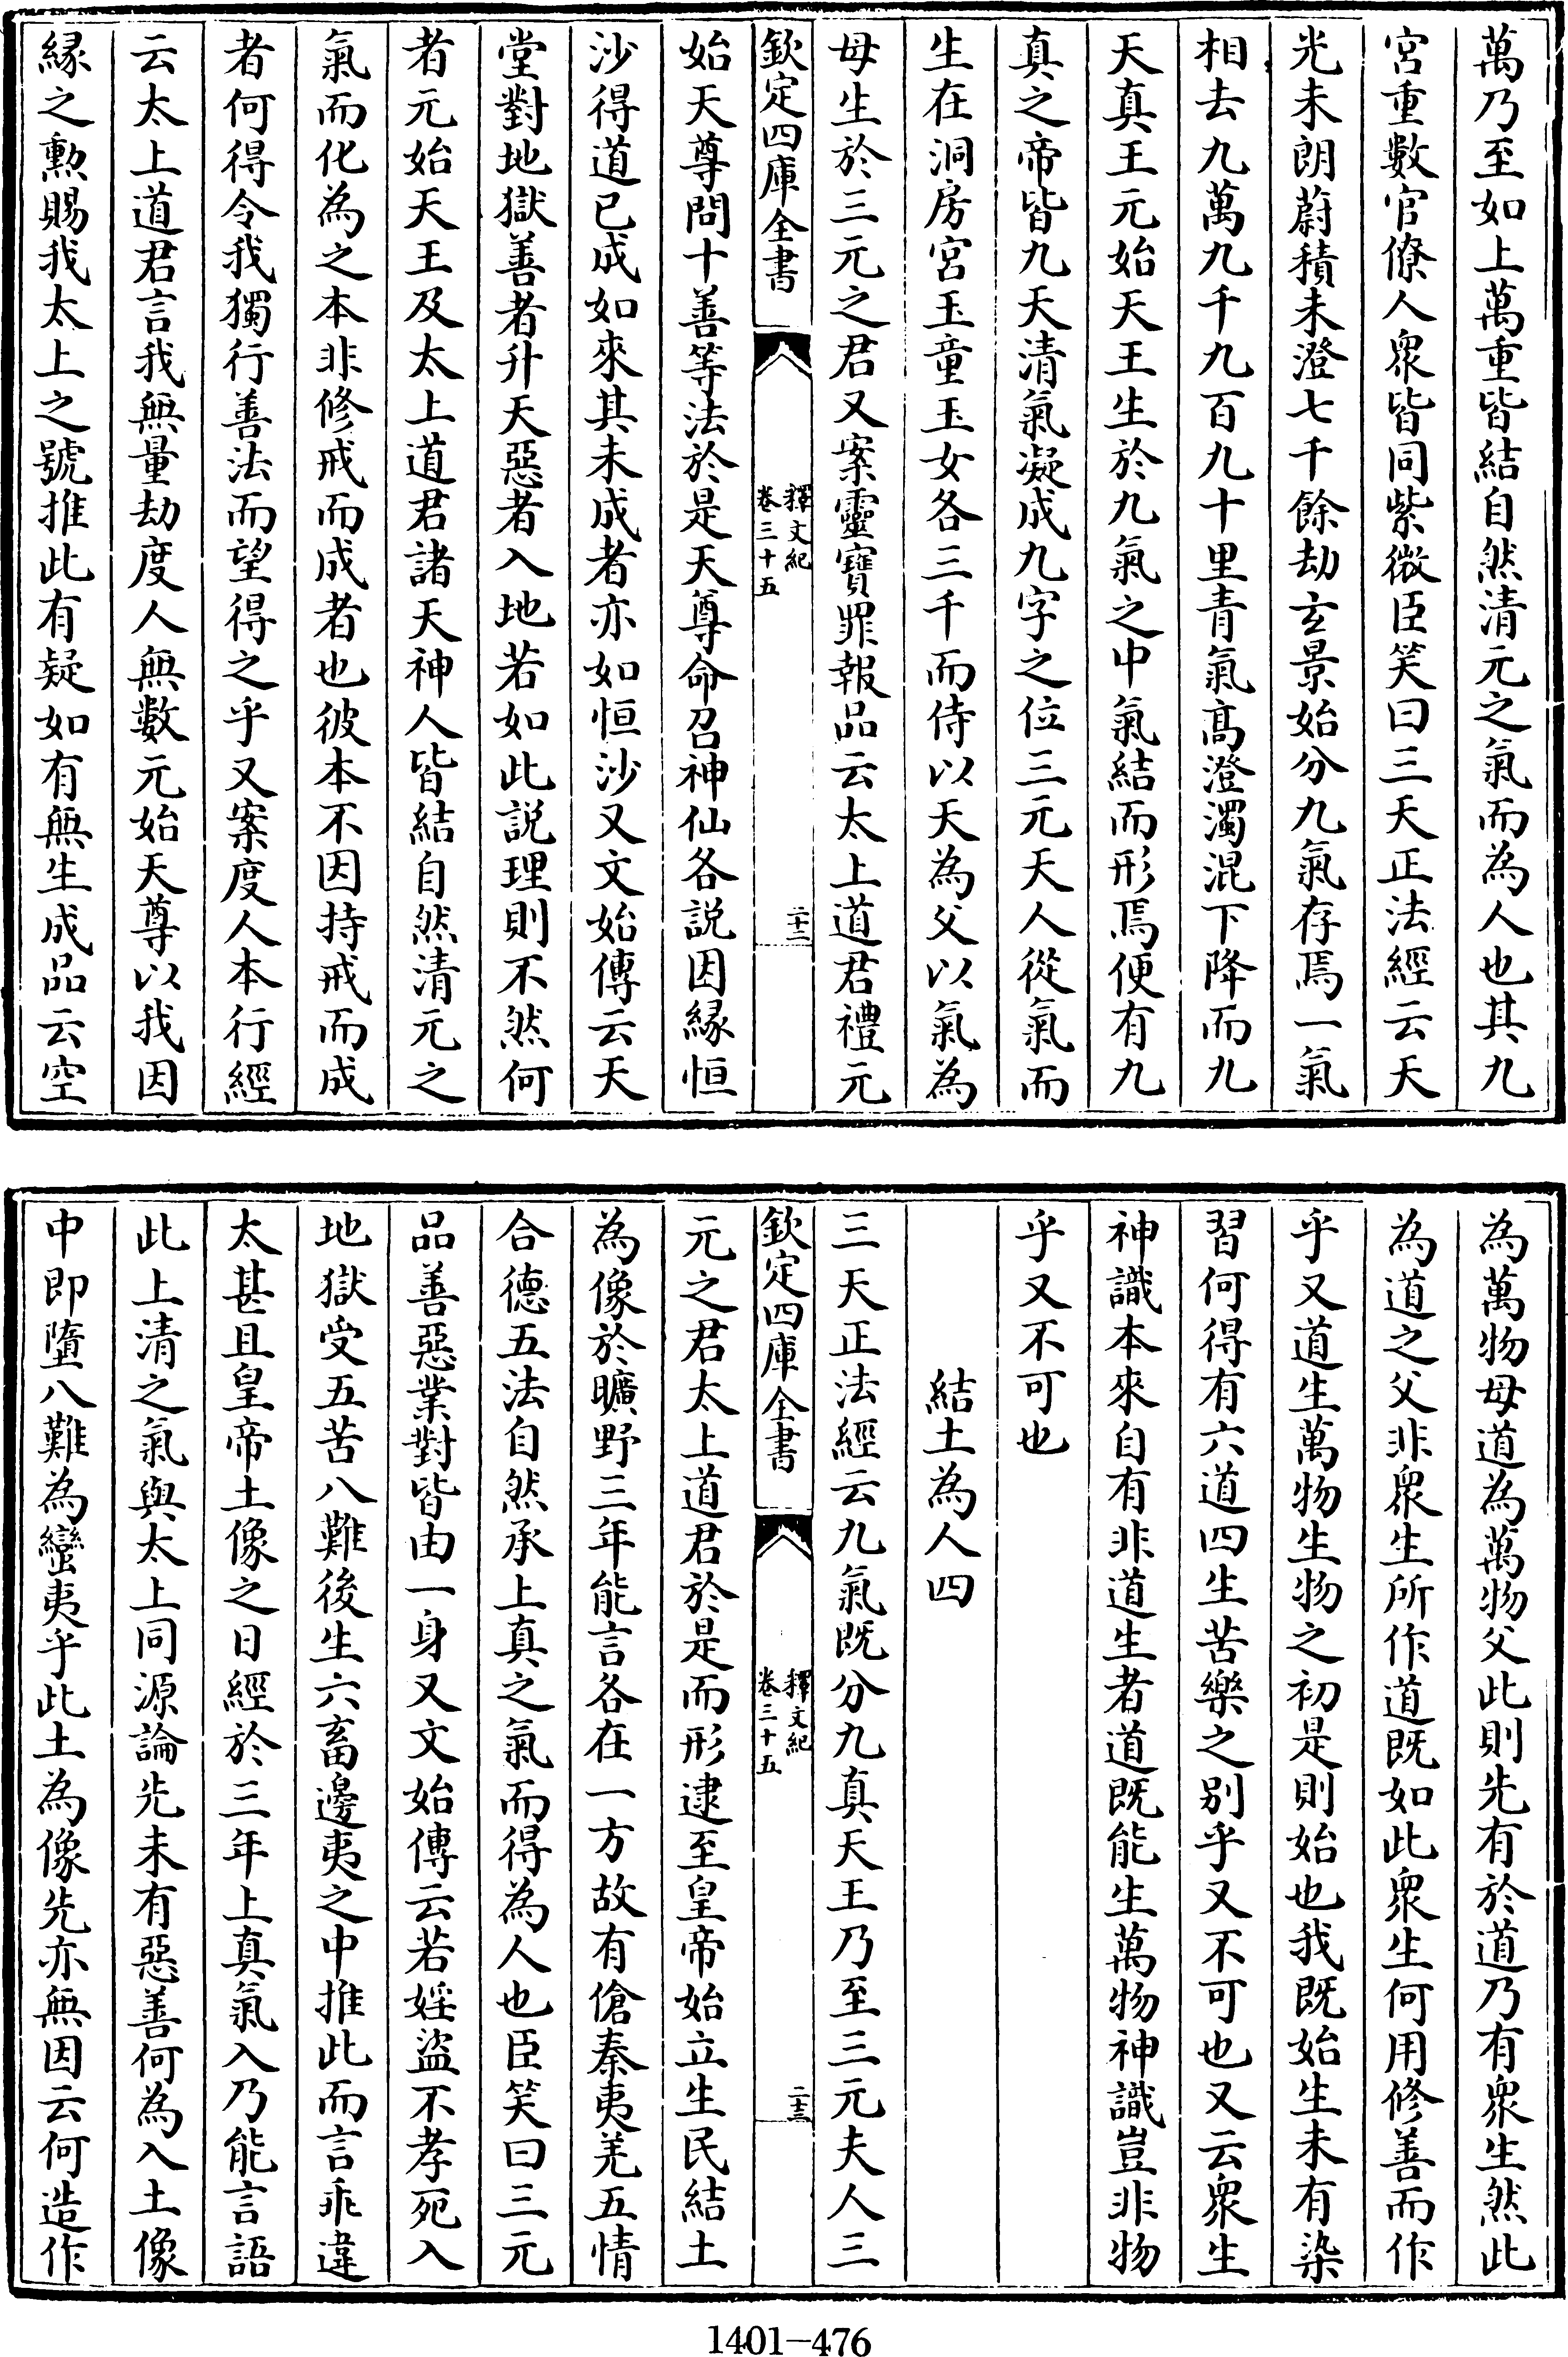 萬乃至如上萬重皆結自然清元之氣而為人也其九
宮重數官僚人衆皆同紫微臣笑曰三天正法經云天
光未朗蔚積未澄七千餘劫玄景始分九氣存焉一氣
相去九萬九千九百九十里青氣髙澄濁混下降而九
天真王元始天王生於九氣之中氣結而形焉便有九
真之帝皆九天清氣凝成九字之位三元天人從氣而
生在洞房宮玉童玉女各三千而侍以天為父以氣為
母生於三元之君又案靈寶罪報品云太上道君禮元
欽定四庫全書
釋文紀
卷三十五
二十二
始天尊問十善等法於是天尊命召神仙各說因緣恒
沙得道已成如來其未成者亦如恒沙又文始傳云天
堂對地獄善者升天惡者入地若如此説理則不然何
者元始天王及太上道君諸天神人皆結自然清元之
氣而化為之本非修戒而成者也彼本不因持戒而成
者何得令我獨行善法而望得之乎又案度人本行經
云太上道君言我無量劫度人無數元始天尊以我因
緣之勲賜我太上之號推此有疑如有無生成品云空
為萬物母道為萬物父此則先有於道乃有衆生然此
為道之父非衆生所作道既如此衆生何用修善而作
乎又道生萬物生物之初是則始也我既始生未有染
習何得有六道四生苦樂之别乎又不可也又云衆生
神識本來自有非道生者道既能生萬物神識豈非物
乎又不可也
結土為人四
三天正法經云九氣既分九真天王乃至三元夫人三
欽定四庫全書
釋文紀
卷三十五
二十三
元之君太上道君於是而形逮至皇帝始立生民結土
為像於曠野三年能言各在一方故有傖秦夷羌五情
合德五法自然承上真之氣而得為人也臣笑曰三元
品善惡業對皆由一身又文始傳云若婬盜不孝死入
地獄受五苦八難後生六畜邊夷之中推此而言乖違
太甚且皇帝土像之日經於三年上真氣入乃能言語
此上清之氣與太上同源論先未有惡善何為入土像
中即墮八難為蠻夷乎此土為像先亦無因云何造作
1401-476